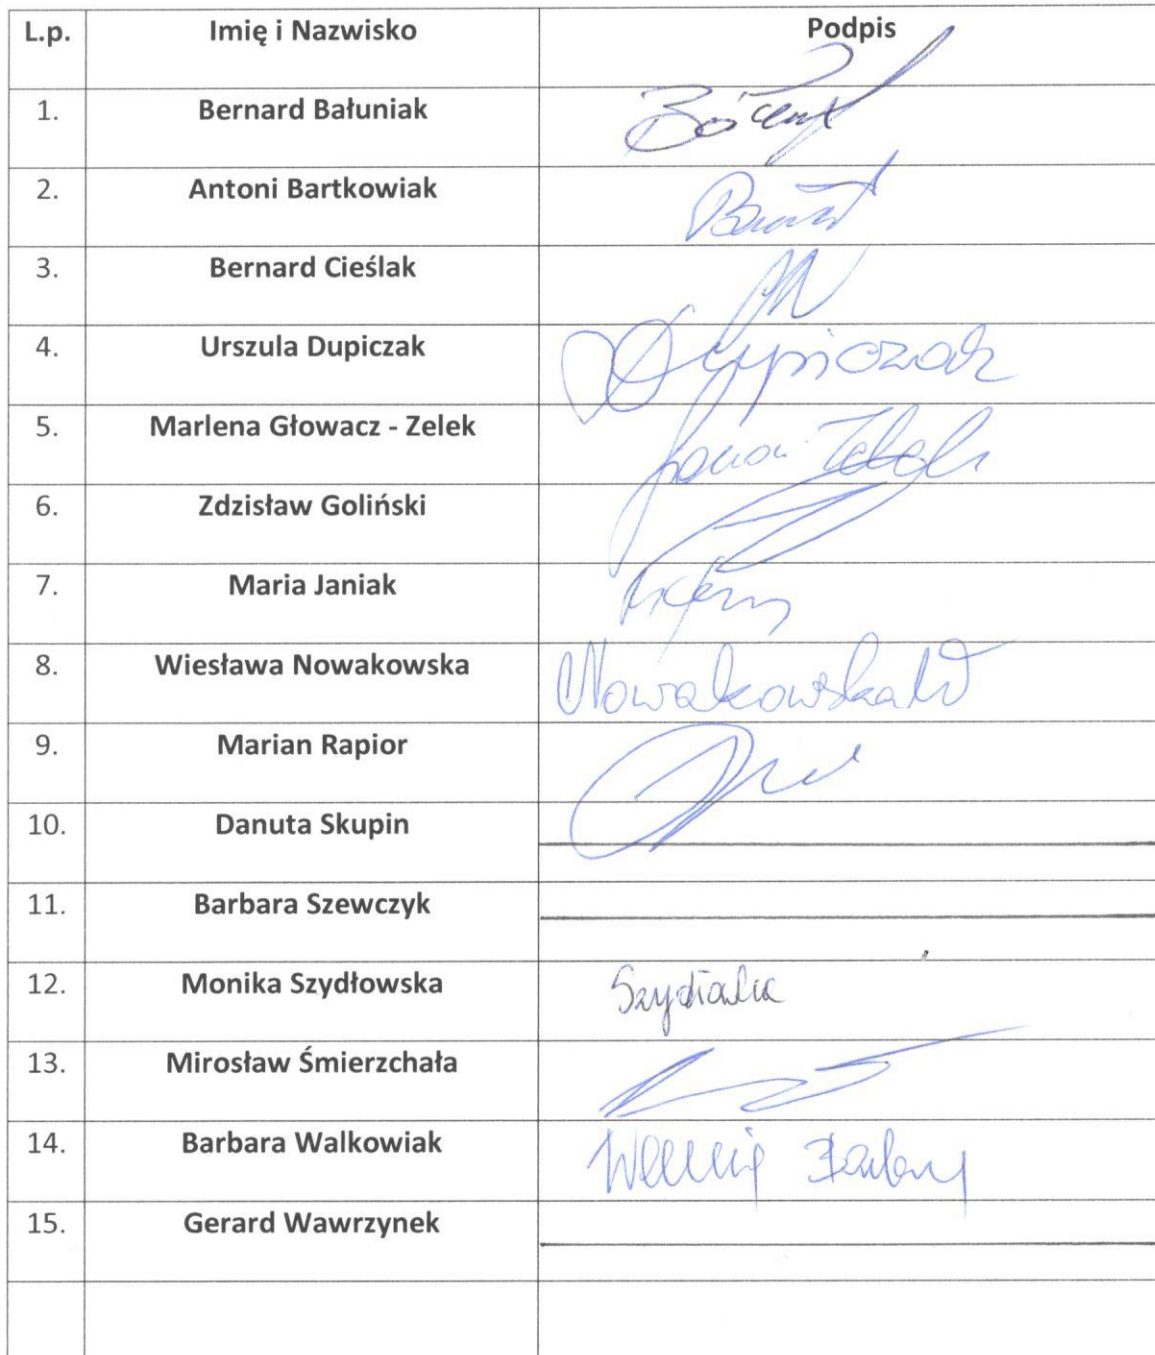 L.p. Imię i Nazwisko Podpis
1. Bernard Bałuniak
2. Antoni Bartkowiak
3. Bernard Cieślak
4. Urszula Dupiczak Dupiczak
5. Marlena Głowacz - Zelek
6. Zdzisław Goliński
7. Maria Janiak
8. Wiesława Nowakowska Nowakowska W
9. Marian Rapior
10. Danuta Skupin
11. Barbara Szewczyk
12. Monika Szydłowska
13. Mirosław Śmierzchała
14. Barbara Walkowiak
15. Gerard Wawrzynek